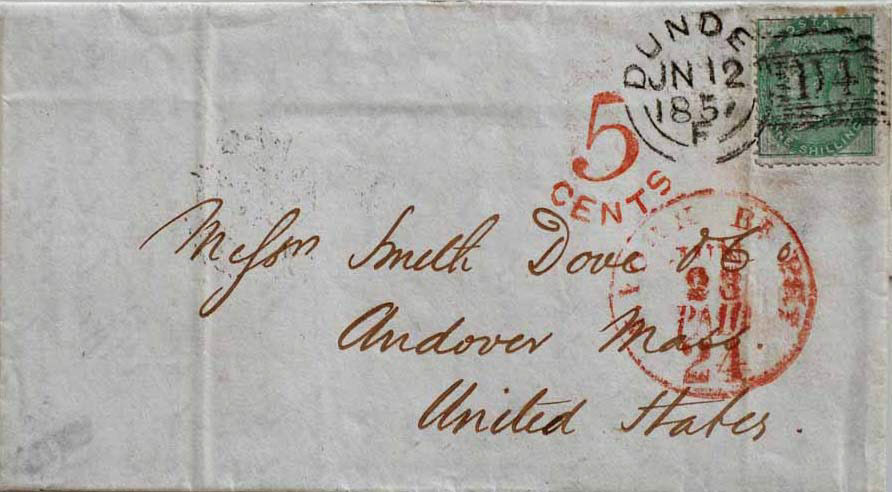 DUNDE
JN 12
185
F
POSTA
114
ONE SHILLING
5
CENTS
BR PKT
PAID
24
Messrs Smith Dove & Co
Andover Mass.
United States.